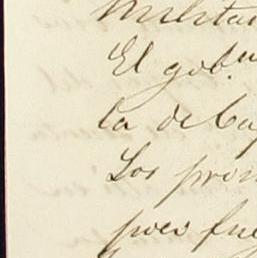 Milita
El gob.n
la de Ca
Los pron
pues fue